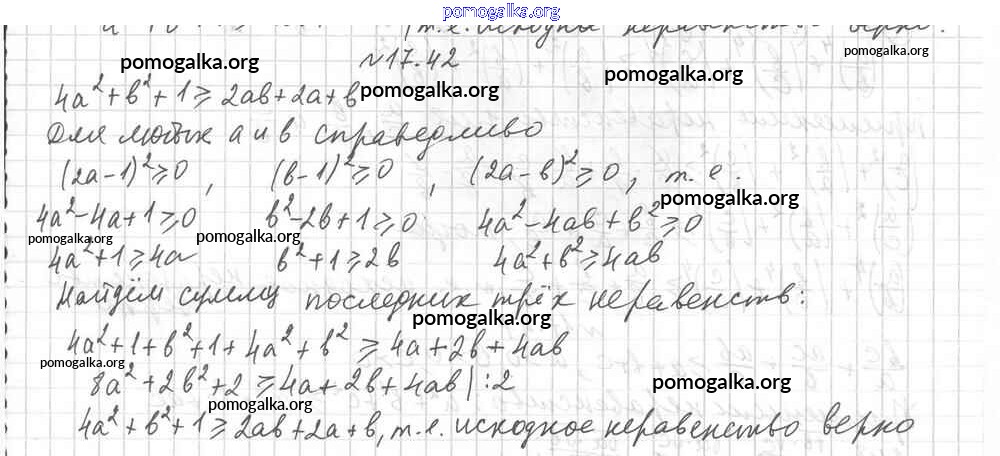 pomogalka.org
(т.е. исходное неравенство верно.
№17.42
pomogalka.org
pomogalka.org
4a²+b²+1⩾2ab+2a+b
pomogalka.org
Для любых a и b справедливо
(2a-1)²⩾0, (b-1)²⩾0, (2a-b)²⩾0, т.е.
pomogalka.org
4a²-4a+1⩾0 b²-2b+1⩾0 4a²-4ab+b²⩾0
pomogalka.org pomogalka.org
4a²+1⩾4a b²+1⩾2b 4a²+b²⩾4ab
Найдём сумму последних трёх неравенств:
pomogalka.org
4a²+1+b²+1+4a²+b²⩾4a+2b+4ab
pomogalka.org
8a²+2b²+2⩾4a+2b+4ab|:2
pomogalka.org
pomogalka.org
4a²+b²+1⩾2ab+2a+b, т.е. исходное неравенство верно